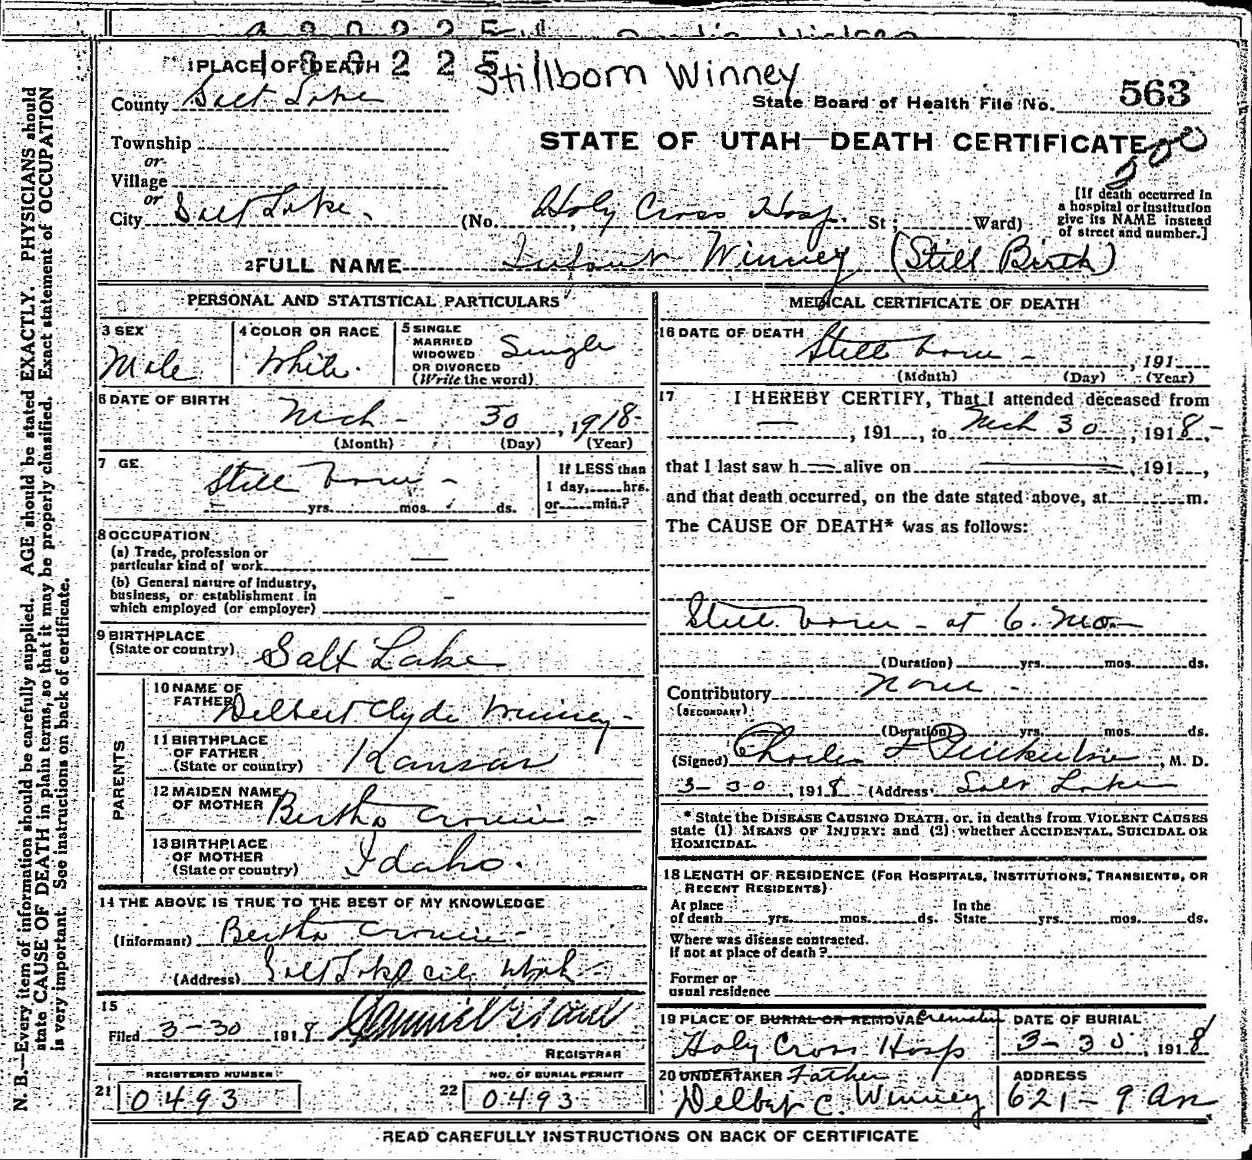 130225
Stillborn Winney
1 PLACE OF DEATH
County Salt Lake
State Board of Health File No. 563
Township
or
Village
or
City Salt Lake.
STATE OF UTAH—DEATH CERTIFICATE
(No. Holy Cross Hosp. St; Ward)
[If death occurred in
a hospital or institution
give its NAME instead
of street and number.]
2 FULL NAME Infant Winney (Still Birth)
PERSONAL AND STATISTICAL PARTICULARS
3 SEX
Male
4 COLOR OR RACE
White.
5 SINGLE
MARRIED
WIDOWED
OR DIVORCED
(Write the word)
Single
6 DATE OF BIRTH
Mch - 30, 1918-
(Month) (Day) (Year)
7 GE
Still born -
yrs. mos. ds.
If LESS than
1 day, hrs.
or min.?
8 OCCUPATION
(a) Trade, profession or
particular kind of work —
(b) General nature of industry,
business, or establishment in
which employed (or employer) –
9 BIRTHPLACE
(State or country) Salt Lake
PARENTS
10 NAME OF
FATHER Delbert Clyde Winney -
11 BIRTHPLACE
OF FATHER
(State or country) Kansas
12 MAIDEN NAME
OF MOTHER Bertha
13 BIRTHPLACE
OF MOTHER
(State or country) Idaho.
14 THE ABOVE IS TRUE TO THE BEST OF MY KNOWLEDGE
(Informant) Bertha
(Address) Salt Lake City Utah -
15
Filed 3-30 1918
REGISTRAR
REGISTERED NUMBER
21 0493
NO. OF BURIAL PERMIT
22 0493
MEDICAL CERTIFICATE OF DEATH
16 DATE OF DEATH
Still born - , 191
(Month) (Day) (Year)
17 I HEREBY CERTIFY, That I attended deceased from
— , 191 , to Mch 30 , 1918.-
that I last saw h — alive on — , 191 ,
and that death occurred, on the date stated above, at m.
The CAUSE OF DEATH* was as follows:
Still born - at 6. mo-
(Duration) yrs. mos. ds.
Contributory None -
(SECONDARY)
(Duration) yrs. mos. ds.
(Signed) Charles , M. D.
3-30, 1918 (Address Salt Lake
* State the DISEASE CAUSING DEATH, or, in deaths from VIOLENT CAUSES
state (1) MEANS OF INJURY; and (2) whether ACCIDENTAL, SUICIDAL OR
HOMICIDAL.
18 LENGTH OF RESIDENCE (FOR HOSPITALS, INSTITUTIONS, TRANSIENTS, OR
RECENT RESIDENTS)
At place
of death yrs. mos. ds.
In the
State yrs. mos. ds.
Where was disease contracted.
If not at place of death?
Former or
usual residence
19 PLACE OF BURIAL OR REMOVAL Cremation
Holy Cross Hosp
DATE OF BURIAL
3-30, 1918
20 UNDERTAKER Father
Delbert C. Winney
ADDRESS
621-9
READ CAREFULLY INSTRUCTIONS ON BACK OF CERTIFICATE
N. B.—Every item of information should be carefully supplied. AGE should be stated EXACTLY. PHYSICIANS should
state CAUSE OF DEATH in plain terms, so that it may be properly classified. Exact statement of OCCUPATION
is very important. See instructions on back of certificate.